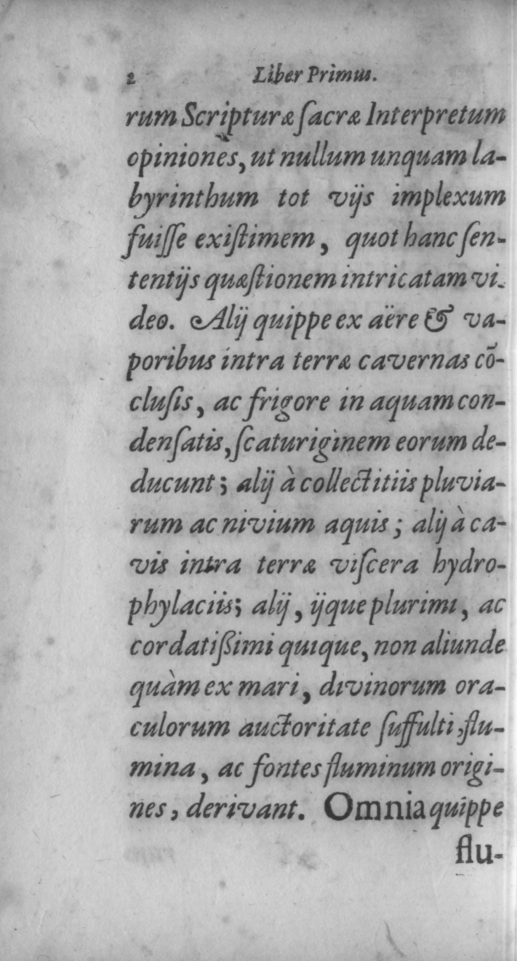 2 Liber Primus.
rum Scripturæ ſacræ Interpretum
opiniones, ut nullum unquam la-
byrinthum tot vijs implexum
fuiſſe exiſtimem, quot hanc ſen-
tentijs quæſtionem intricatam vi-
deo. Alij quippe ex aëre & va-
poribus intra terræ cavernas cō-
cluſis, ac frigore in aquam con-
denſatis, ſcaturiginem eorum de-
ducunt; alij à collectitiis pluvia-
rum ac nivium aquis; alij à ca-
vis intra terræ viſcera hydro-
phylaciis; alij, ijque plurimi, ac
cordatißimi quique, non aliunde
quàm ex mari, divinorum ora-
culorum auctoritate ſuffulti, flu-
mina, ac fontes fluminum origi-
nes, derivant. Omnia quippe
flu-